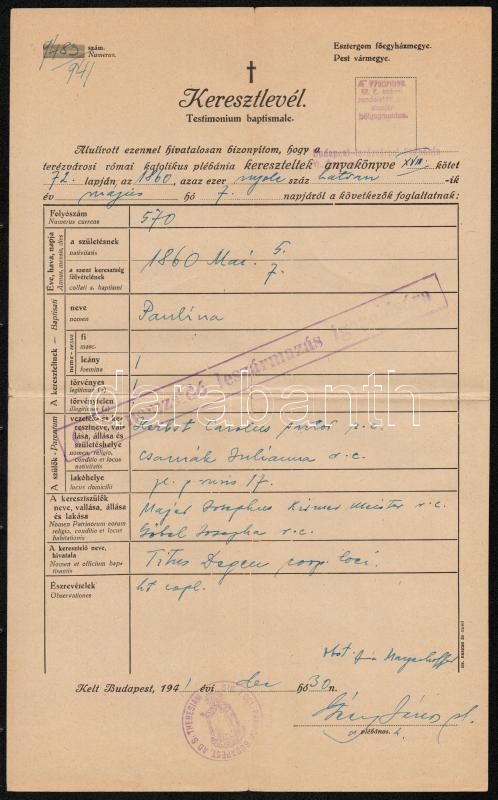 9483 szám.
Numerus.
941
Esztergom főegyházmegye.
Pest vármegye.
Keresztlevél.
Testimonium baptismale.
Alulírott ezennel hivatalosan bizonyítom, hogy a
terézvárosi római katolikus plébánia kereszteltek anyakönyve XVIII. kötet
72. lapján az 1860, azaz ezer nyolc száz hatvan -ik
év május hó 7. napjáról a következők foglaltatnak:
Folyószám
Numerus currens
570
Éve, hava, napja
Annus, mensis, dies
a születésnek
nativitatis
1860 Mai. 5.
a szent keresztség
fölvételének
collati s. baptismi
7.
A keresztelt­nek — Baptisati
neve
nomen
Paulina
neme - sexus
fi
masc.
leány
foemina
1
törvényes
legitimus (a)
1
törvénytelen
illegitimus (a)
A szülők - Parentum
vezeték- és ke-
resztneve, val-
lása, állása és
születéshelye
nomen, religio,
conditio et locus
nativitatis
Herbst Carolus r.c.
Csarnák Julianna r.c.
lakóhelye
locus domicilii
17.
A keresztszülők
neve, vallása, állása
és lakása
Nomen Patrinorum eorum
religio, conditio et locus
habitationis
Majer Josephus r.c.
Göbel Josepha r.c.
A keresztelő neve,
hivatala
Nomen et officium bap-
tisantis
Titus Degen coop. loci.
Észrevételek
Observationes
ht capl.
leszármazás igazolására
darabanth
Kelt Budapest, 1941 évi dec hó 30 n.
plébános